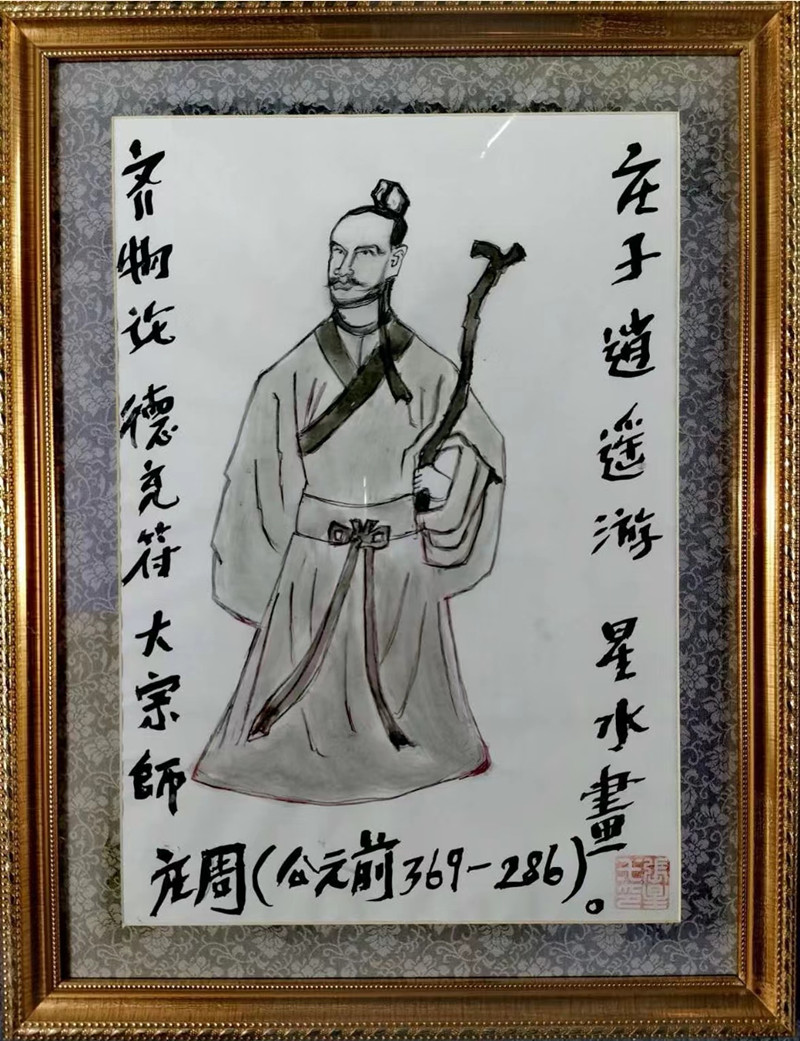 庄子逍遥游 星水畫
齐物论 德充符 大宗師
庄周(公元前369-286)。